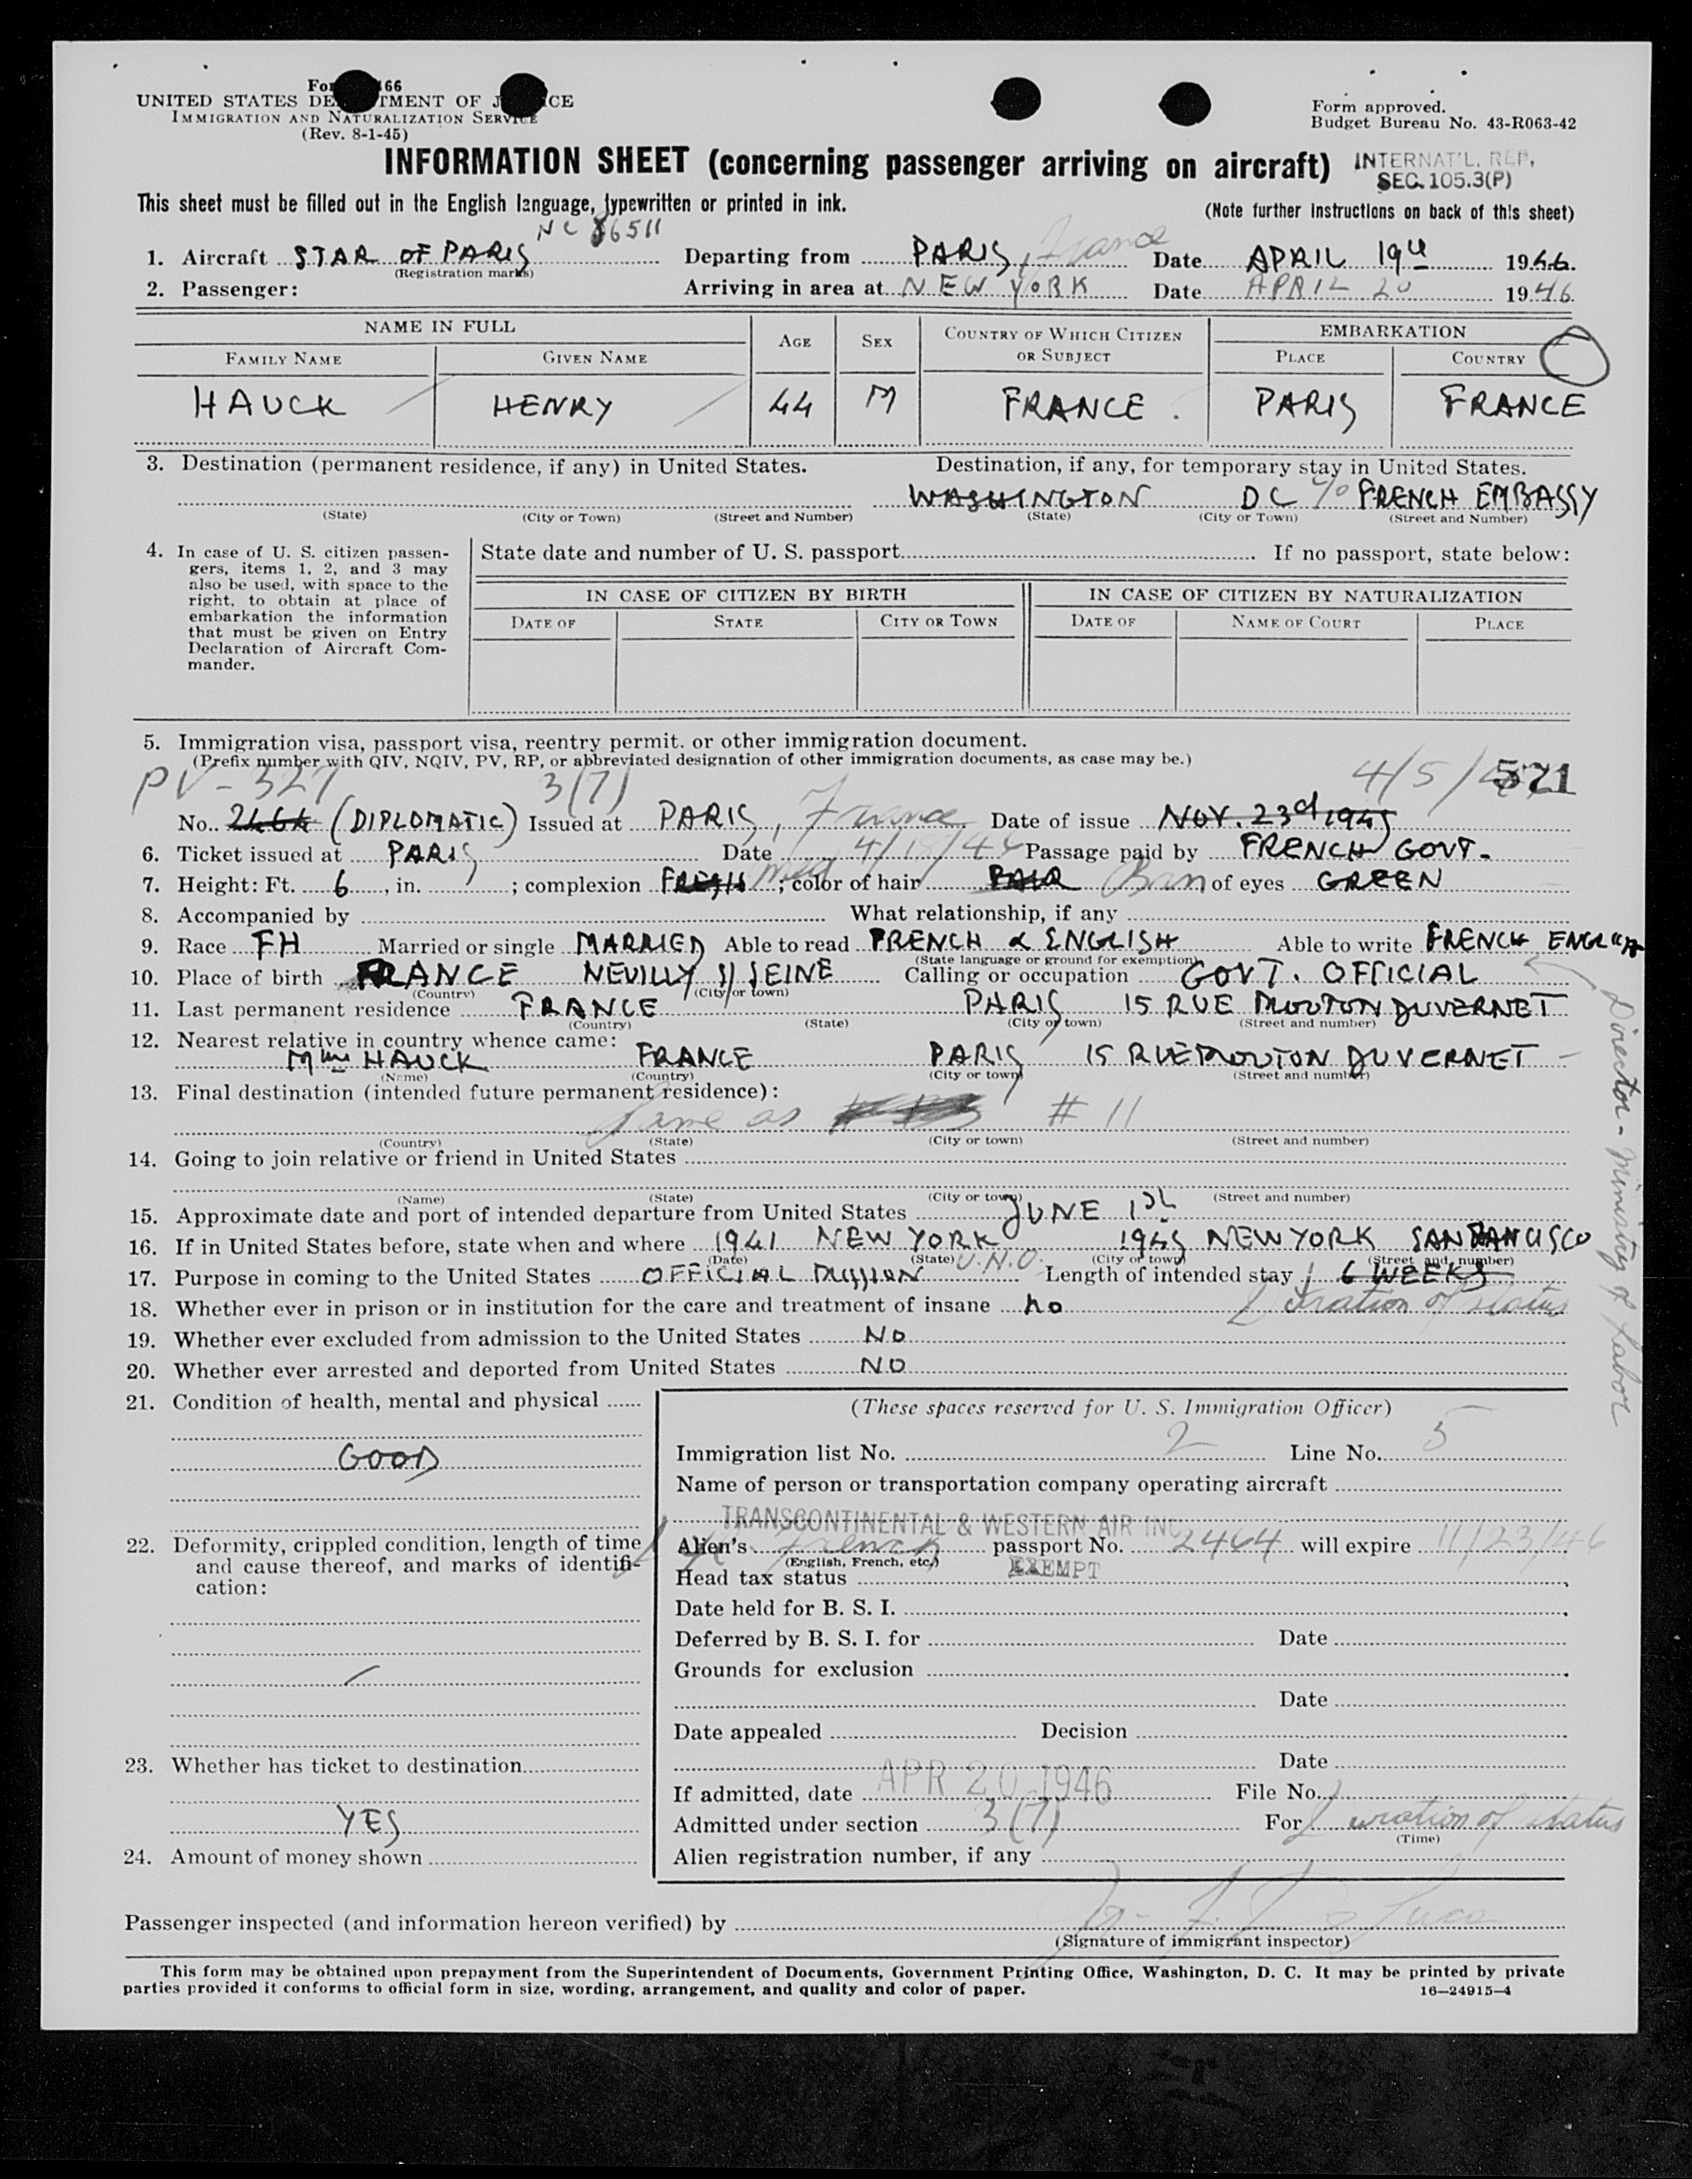 Form 466
UNITED STATES DEPARTMENT OF JUSTICE
IMMIGRATION AND NATURALIZATION SERVICE
(Rev. 8-1-45)
Form approved.
Budget Bureau No. 43-R063-42
INFORMATION SHEET (concerning passenger arriving on aircraft)
INTERNAT'L. REP.
SEC. 105.3(P)
This sheet must be filled out in the English language, typewritten or printed in ink.
(Note further instructions on back of this sheet)
NC 86511
1. Aircraft STAR OF PARIS Departing from PARIS, France Date APRIL 19th 1946.
(Registration marks)
2. Passenger: Arriving in area at NEW YORK Date APRIL 20 1946
NAME IN FULL AGE SEX COUNTRY OF WHICH CITIZEN OR SUBJECT EMBARKATION
FAMILY NAME GIVEN NAME PLACE COUNTRY
HAUCK HENRY 44 M FRANCE. PARIS FRANCE
3. Destination (permanent residence, if any) in United States. Destination, if any, for temporary stay in United States.
WASHINGTON DC c/o FRENCH EMBASSY
(State) (City or Town) (Street and Number) (State) (City or Town) (Street and Number)
4. In case of U. S. citizen passengers, items 1, 2, and 3 may also be used, with space to the right, to obtain at place of embarkation the information that must be given on Entry Declaration of Aircraft Commander.
State date and number of U. S. passport If no passport, state below:
IN CASE OF CITIZEN BY BIRTH IN CASE OF CITIZEN BY NATURALIZATION
DATE OF STATE CITY OR TOWN DATE OF NAME OF COURT PLACE
5. Immigration visa, passport visa, reentry permit, or other immigration document.
(Prefix number with QIV, NQIV, PV, RP, or abbreviated designation of other immigration documents, as case may be.)
PV-327 3(7) 4/5/ 571
No. 2464 (DIPLOMATIC) Issued at PARIS, France Date of issue NOV. 23d 1945
6. Ticket issued at PARIS Date 4/18/46 Passage paid by FRENCH GOVT.
7. Height: Ft. 6, in. ; complexion FRESH med; color of hair FAIR of eyes GREEN
8. Accompanied by What relationship, if any
9. Race FH Married or single MARRIED Able to read FRENCH & ENGLISH Able to write FRENCH ENGLISH
(State language or ground for exemption)
10. Place of birth FRANCE NEUILLY S/ SEINE Calling or occupation GOVT. OFFICIAL
(Country) (City or town)
11. Last permanent residence FRANCE PARIS 15 RUE MOUTON DUVERNET
(Country) (State) (City or town) (Street and number)
12. Nearest relative in country whence came:
Mme HAUCK FRANCE PARIS 15 RUE MOUTON DUVERNET
(Name) (Country) (City or town) (Street and number)
13. Final destination (intended future permanent residence):
Same as # 11
(Country) (State) (City or town) (Street and number)
14. Going to join relative or friend in United States
(Name) (State) (City or town) (Street and number)
15. Approximate date and port of intended departure from United States JUNE 1st
16. If in United States before, state when and where 1941 NEW YORK 1945 NEW YORK SAN FRANCISCO
(Date) (State) (City or town) (Street and number)
17. Purpose in coming to the United States OFFICIAL MISSION U.N.O. Length of intended stay 6 WEEKS
Duration of status
18. Whether ever in prison or in institution for the care and treatment of insane no
19. Whether ever excluded from admission to the United States NO
20. Whether ever arrested and deported from United States NO
Director - Ministry of Labor
21. Condition of health, mental and physical
GOOD
22. Deformity, crippled condition, length of time and cause thereof, and marks of identification:
23. Whether has ticket to destination
YES
24. Amount of money shown
(These spaces reserved for U. S. Immigration Officer)
Immigration list No. 2 Line No. 5
Name of person or transportation company operating aircraft
TRANSCONTINENTAL & WESTERN AIR INC
Alien's French passport No. 2464 will expire 11/23/46
(English, French, etc.)
Head tax status EXEMPT
Date held for B. S. I.
Deferred by B. S. I. for Date
Grounds for exclusion
Date
Date appealed Decision
Date
If admitted, date APR 20 1946 File No.
Admitted under section 3(7) For Duration of status
(Time)
Alien registration number, if any
Passenger inspected (and information hereon verified) by
(Signature of immigrant inspector)
This form may be obtained upon prepayment from the Superintendent of Documents, Government Printing Office, Washington, D. C. It may be printed by private
parties provided it conforms to official form in size, wording, arrangement, and quality and color of paper.
16—24915-4